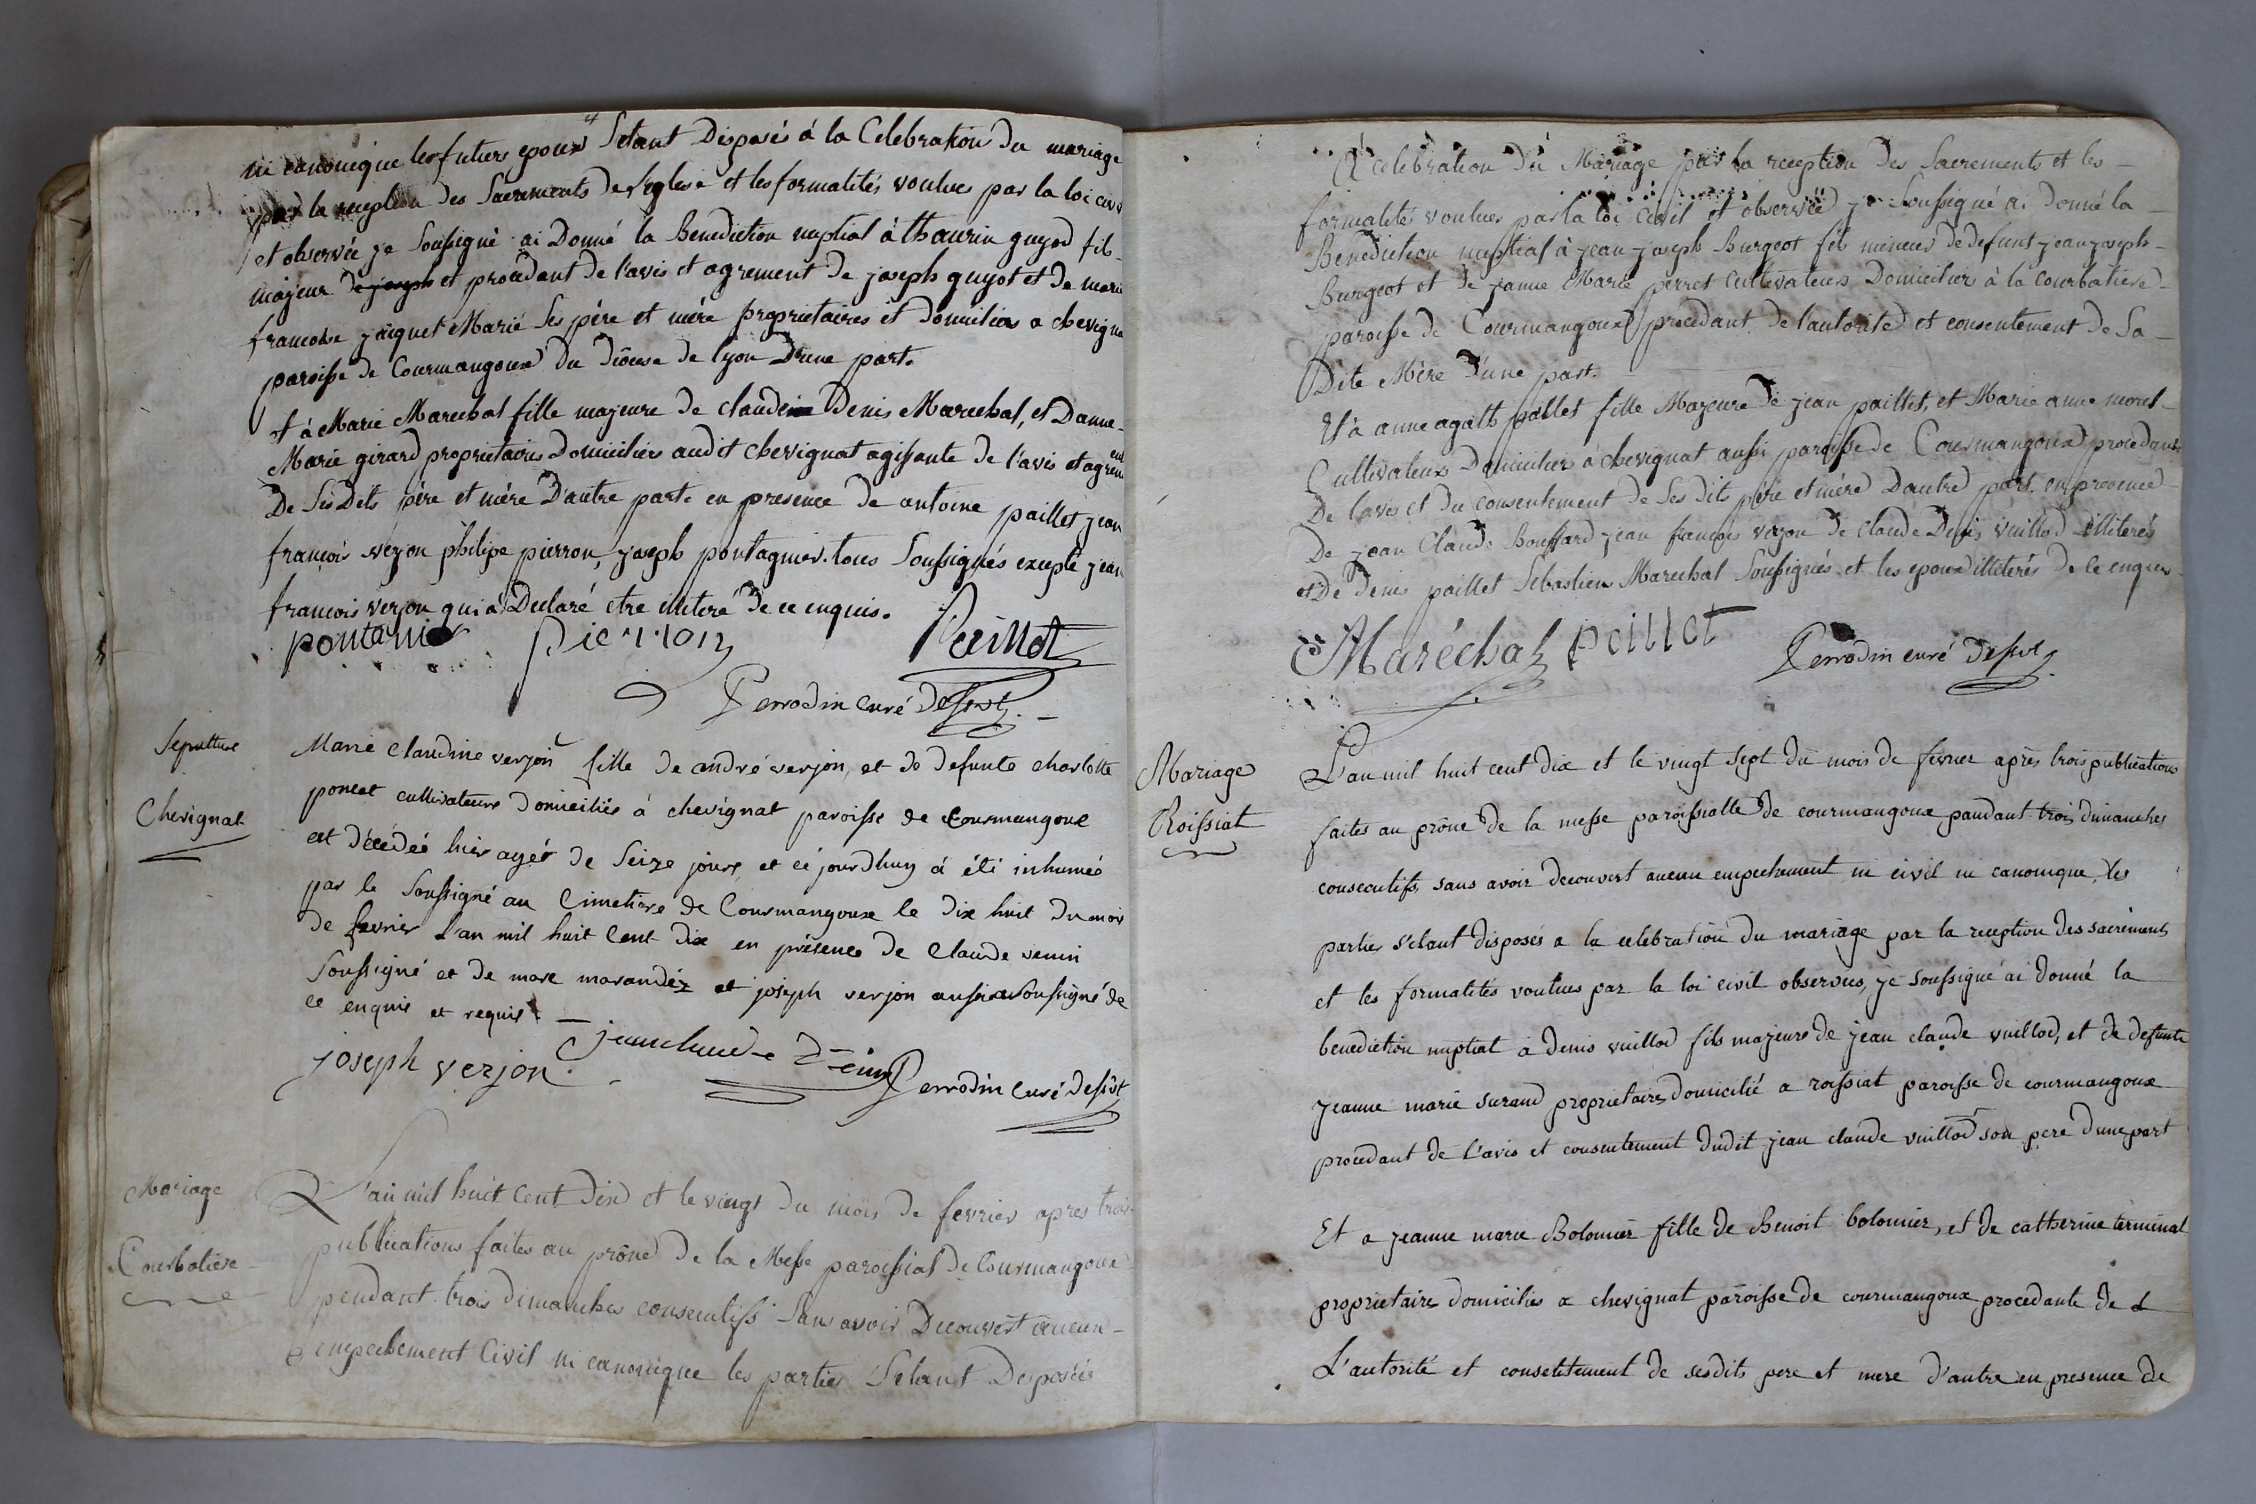 ni canonique les futurs epoux Setant Disposés à la Celebration du mariage
par la reception des Sacrements de leglise et les formalités voulues par la loi civil
et observée je Soussigné ai Donné la Benediction nuptial à thaurin guyod fils
majeur de joseph et procédant de l'avis et agrement de joseph guyot et de marie
francoise jaiguet Marié Ses père et mére proprietaires et domicilies a chevigna
paroisse de Courmangoux du diôcese de lyon D'une part.
et à Marie Marechal fille majeure de claude Denis Marechal, et D'anne
Marie girard proprietaires Domiciliers audit chevignat agissante de l'avis et agrem ent
De Ses Dits père et mère D'autre part. en presence de antoine paillet jean
francois verjon philipe pierron, joseph pontagnier. tous Soussignés excepté jean
francois verjon qui a Declaré etre illiteré de ce enquis.
pontanier pierron Peillot
Perrodin curé Dessvt
Sepulture
Chevignat
Marie claudine verjon fille de andré verjon, et de defunte charlotte
poncet cultivateurs domiciliés à chevignat paroisse de courmangoux
est décédée hier agée de Seize jours, et ce jourdhuy à été inhumée
par le Soussigné au Cimetiere de Courmangoux le dix huit du mois
de fevrier L'an mil huit Cent dix en présence de Claude venin
Soussigné et de marc marandéz et joseph verjon aussi Soussigné de
ce enquis et requis.
joseph verjon. jean claude Venin Perrodin curé dessvt
Mariage
Courbatiere
L'an mil huit Cent dix et le vingt du mois de fevrier apres trois
publications faites au prône de la Messe paroissial de Courmangoux
pendant trois dimanches consecutifs Sans avoir Decouvert aucun
empechement Civil ni canonique les parties S'etant Disposées
A celebration du Mariage par la reception des Sacrements et les
formalités voulues par la loi Civil et observée je Soussigné ai donné la
Benediction nuptial à jean joseph Burgeot fils mineur de defunt jean joseph
Burgeot et de jeanne Marie perret cultivateurs Domicilies à la Courbatiere
paroisse de Courmangoux procedant de l'autorité et consentement de Sa
Dite Mère D'une part.
Et à anne agath paillet fille Majeure de jean paillet, et Marie anne morel
Cultivateurs Domicilies à chevignat aussi paroisse de Courmangoux procedant
De l'avis et du consentement de Ses dits père et mère D'autre part. en presence
De jean Claude Bouffard jean francois verjon de claude Denis vuillod illiterés
et De denis paillet Sebastien Marechal Soussignés et les epoux illiterés de ce enquis
Maréchal peillot Perrodin curé dessvt
Mariage
Roissiat
L'an mil huit cent dix et le vingt Sept du mois de fevrier après trois publications
faites au prône de la messe paroissialle de courmangoux pandant trois dimanches
consecutifs, sans avoir decouvert aucun empechement ni civil ni canonique, les
parties s'etant disposés a la celebration du mariage par la reception des sacrements
et les formalités voulues par la loi civil observées, je soussigné ai donné la
benediction nuptial à denis vuillod fils majeure de jean claude vuillod, et de defunte
jeanne marie surand proprietaires domicilié a roissiat paroisse de courmangoux
procedant de l'avis et consentement dudit jean claude vuillod son pere d'une part
Et a jeanne marie Bolomier fille de Benoit bolomier, et de catherine terminal
proprietaires domiciliés a chevignat paroisse de courmangoux procedante de l
L'autorité et consetitement de sesdits pere et mere d'autre en presence de